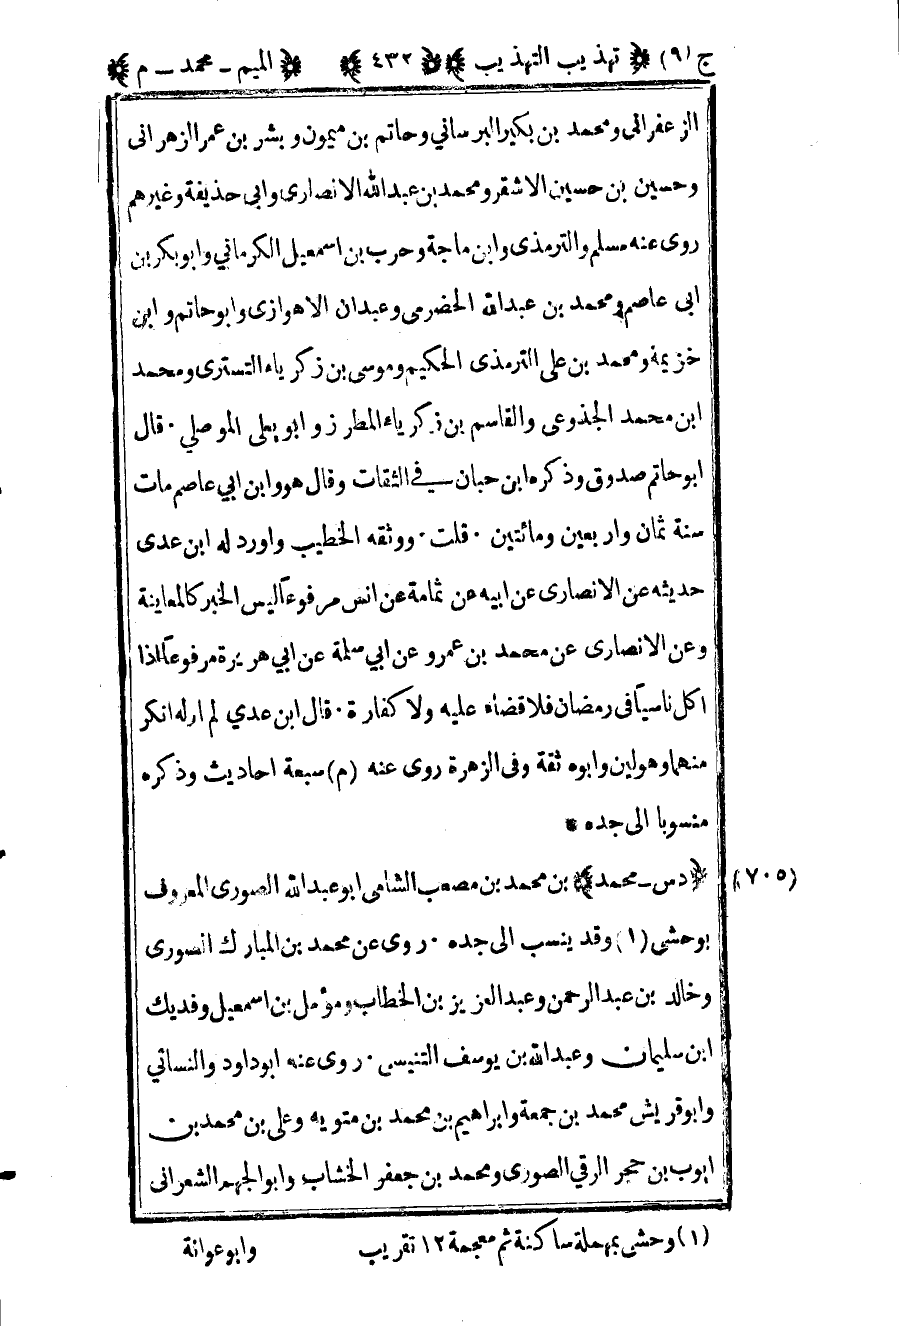 ج (٩) ﴿ تهذيب التهذيب ﴾ ﴿ ٤٣٢ ﴾ ﴿ الميم ـ محمد ـ م ﴾
الزعفراني ومحمد بن بكير البرساني وحاتم بن ميمون وبشر بن عمر الزهراني
وحسين بن حسين الاشقر ومحمد بن عبد الله الانصارى وابي حذيفة وغيرهم
روى عنه مسلم والترمذى وابن ماجة وحرب بن اسمعيل الكرماني وابو بكر بن
ابى عاصم ومحمد بن عبدالله الحضرمى وعبدان الاهوازى وابو حاتم و ابن
خزيمة ومحمد بن على الترمذى الحكيم وموسى بن زكرياء التسترى ومحمد
ابن محمد الجذوعى والقاسم بن زكرياء المطرز و ابو يعلى الموصلي ٠ قال
ابو حاتم صدوق وذكره ابن حبان في الثقات وقال هو وابن ابي عاصم مات
سنة ثمان واربعين ومائتين ٠ قلت ٠ ووثقه الخطيب واورد له ابن عدى
حديثه عن الانصارى عن ابيه عن ثمامة عن انس مرفوعاً ليس الخبر كالمعاينة
وعن الانصارى عن محمد بن عمرو عن ابي سلمة عن ابي هريرة مرفوعاً اذا
اكل ناسياً فى رمضان فلا قضاء عليه ولا كفارة ٠ قال ابن عدي لم ار له انكر
منهما وهو لين وابوه ثقة وفى الزهرة روى عنه (م) سبعة احاديث وذكره
منسوبا الى جده *
(٧٠٥) ﴿ دس ـ محمد ﴾ بن محمد بن مصعب الشامى ابو عبدالله الصورى المعروف
بوحشى (١) وقد ينسب الى جده ٠ روى عن محمد بن المبارك الصورى
وخالد بن عبد الرحمن وعبد العزيز بن الخطاب ومؤمل بن اسمعيل وفديك
ابن سليمان وعبدالله بن يوسف التنيسى ٠ روى عنه ابو داود والنسائي
وابو قريش محمد بن جمعة وابراهيم بن محمد بن متويه وعلى بن محمد بن
ايوب بن حجر الرقي الصورى ومحمد بن جعفر الخشاب وابو الجهم الشعرانى
(١) وحشى بمهملة ساكنة ثم معجمة ١٢ تقريب
وابو عوانة